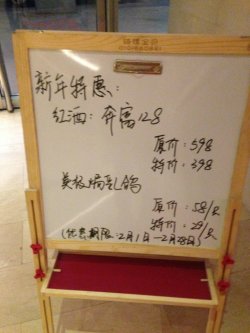 新年特惠：
红酒：奔富128
原价：598
特价：398
美极焗乳鸽
原价：58/只
特价：29/只
（优惠期限：2月1日—2月28日）